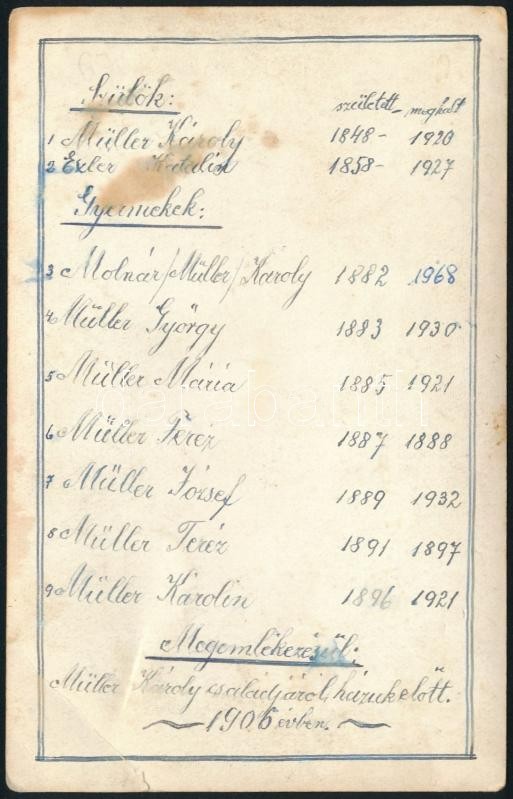 Szülők: született- meghalt
1 Müller Károly 1848- 1920
2 Exler Katalin 1858- 1927
Gyermekek:
3 Molnár/Müller/Károly 1882 1968
4 Müller György 1883 1930
5 Müller Mária 1885 1921
6 Müller Teréz 1887 1888
7 Müller József 1889 1932
8 Müller Teréz 1891 1897
9 Müller Karolin 1896 1921
Megemlékezésül:
Müller Károly családjáról, házuk előtt.
~ 1906 évben. ~